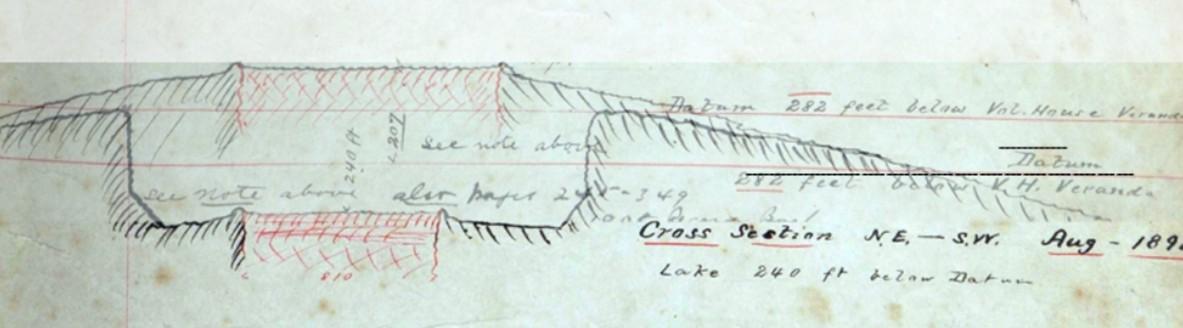 Datum 282 feet below Vol. House Veranda
240 ft
207
See note above
Datum
282 feet below V.H. Veranda
See note above also pages
Cross Section N.E. — S.W. Aug - 189
Lake 240 ft below Datum
810